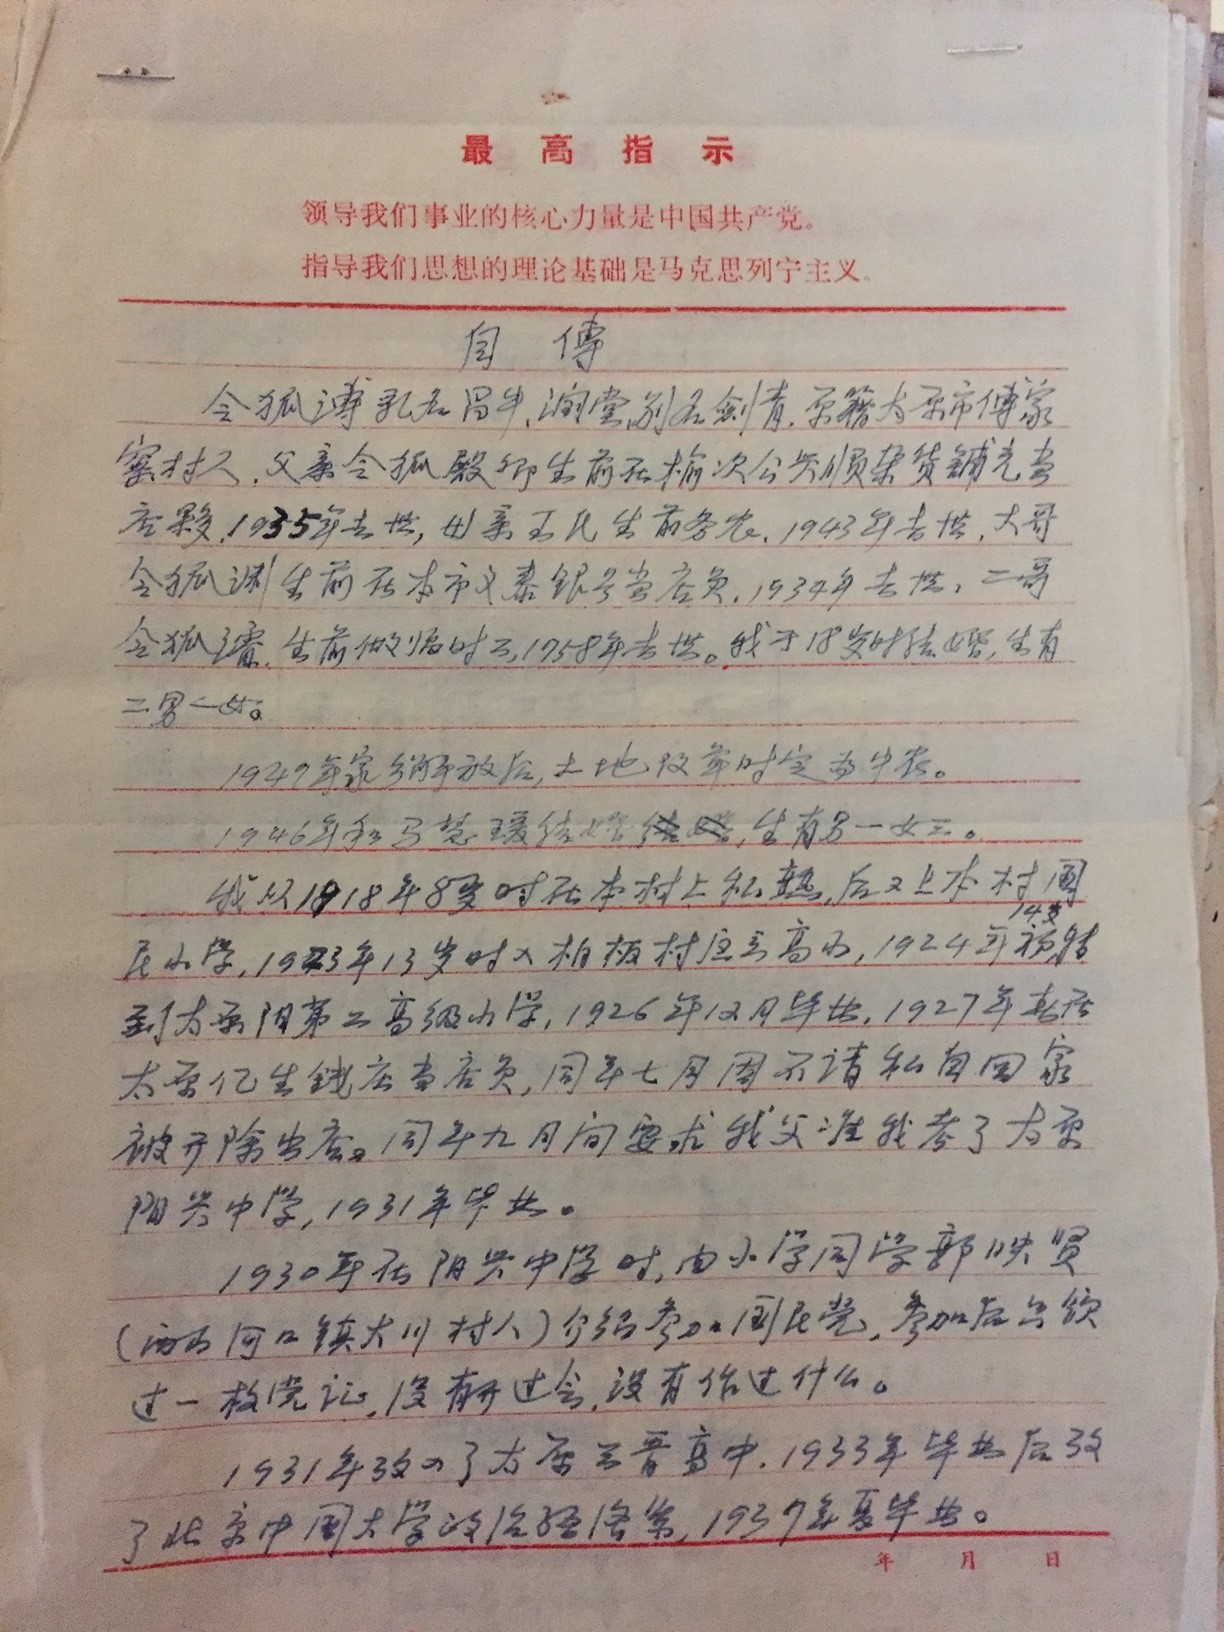 最高指示
领导我们事业的核心力量是中国共产党。
指导我们思想的理论基础是马克思列宁主义。
自傳
令狐溥乳名昌牛、润堂,别名剑青.原籍太原市傅家
窑村人.父亲令狐殿卿生前在榆次公兴顺杂货铺充当
店夥.1935年去世,母亲王氏生前务农.1943年去世.大哥
令狐渊生前在本市义泰银号当店员.1934年去世.二哥
令狐濬.生前做临时工,1958年去世。我于18岁时结婚,生有
二男一女。
1949年家乡解放后,土地改革时定为中农。
1946年和马慧瑗结婚,生有男一女三。
我从1918年8岁时在本村上私塾,后又上本村国
民小学,1923年13岁时入柏板村区立高小,1924年14岁
到太原阳第二高级小学,1926年12月毕业.1927年春在
太原亿生钱店当店员,同年七月因不请私自回家
被开除出店。同年九月间要求我父准我考了太原
阳兴中学,1931年毕业。
1930年在阳兴中学时,由小学同学郭映贤
(河口镇大川村人)介绍参加国民党,参加后只领
过一枚党证,没有开过会,没有作过什么。
1931年考入了太原三晋高中.1933年毕业后考
了北京中国大学政治经济系,1937年夏毕业。
年 月 日